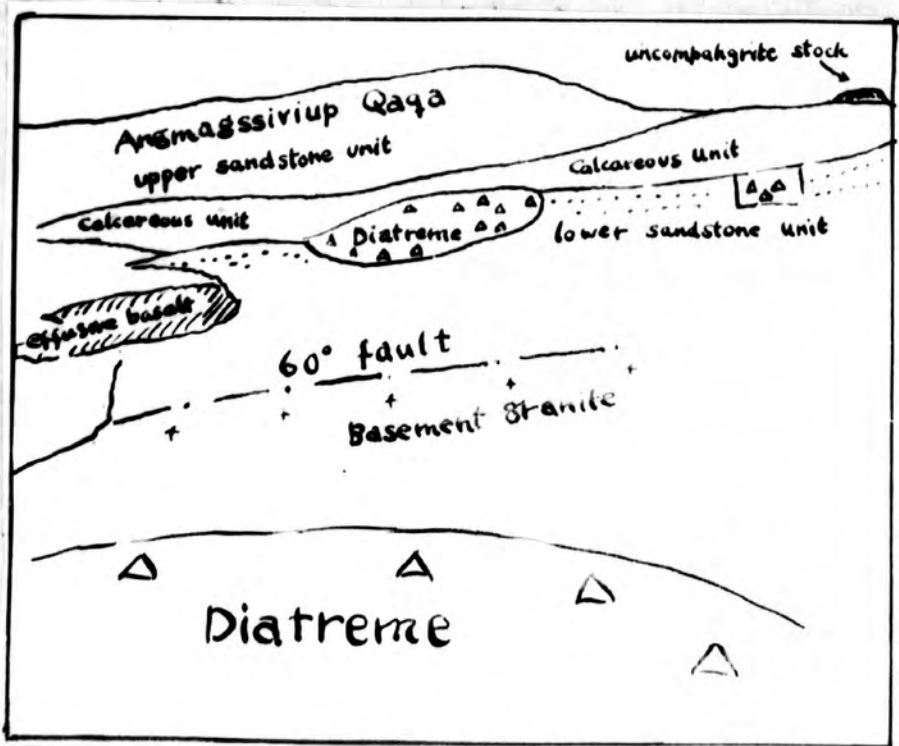 uncompahgrite stock
Angmagssiviup Qaqa
upper sandstone unit
Calcareous unit
Calcareous unit
Diatreme
lower sandstone unit
effusive basalt
60° fault
Basement granite
Diatreme